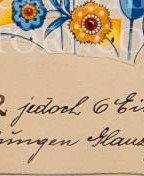 & jedoch 6 Ei
dungen Haus